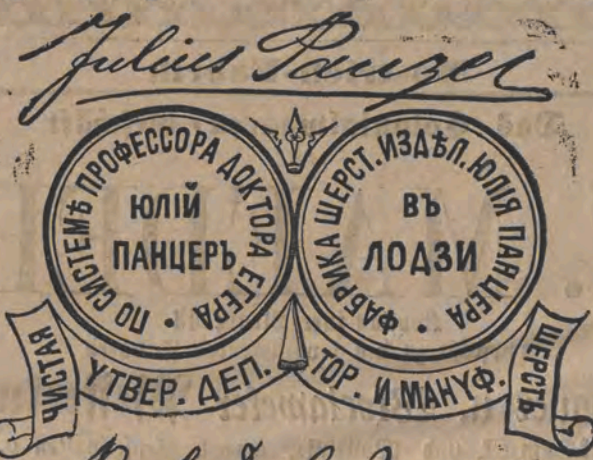 Julius Panzer
ПО СИСТЕМѢ ПРОФЕССОРА ДОКТОРА ЕГЕРА
ЮЛІЙ
ПАНЦЕРЪ
ФАБРИКА ШЕРСТ. ИЗДѢЛ. ЮЛІЯ ПАНЦЕРА
ВЪ
ЛОДЗИ
ЧИСТАЯ
УТВЕР. ДЕП.
ТОР. И МАНУФ.
ШЕРСТЬ